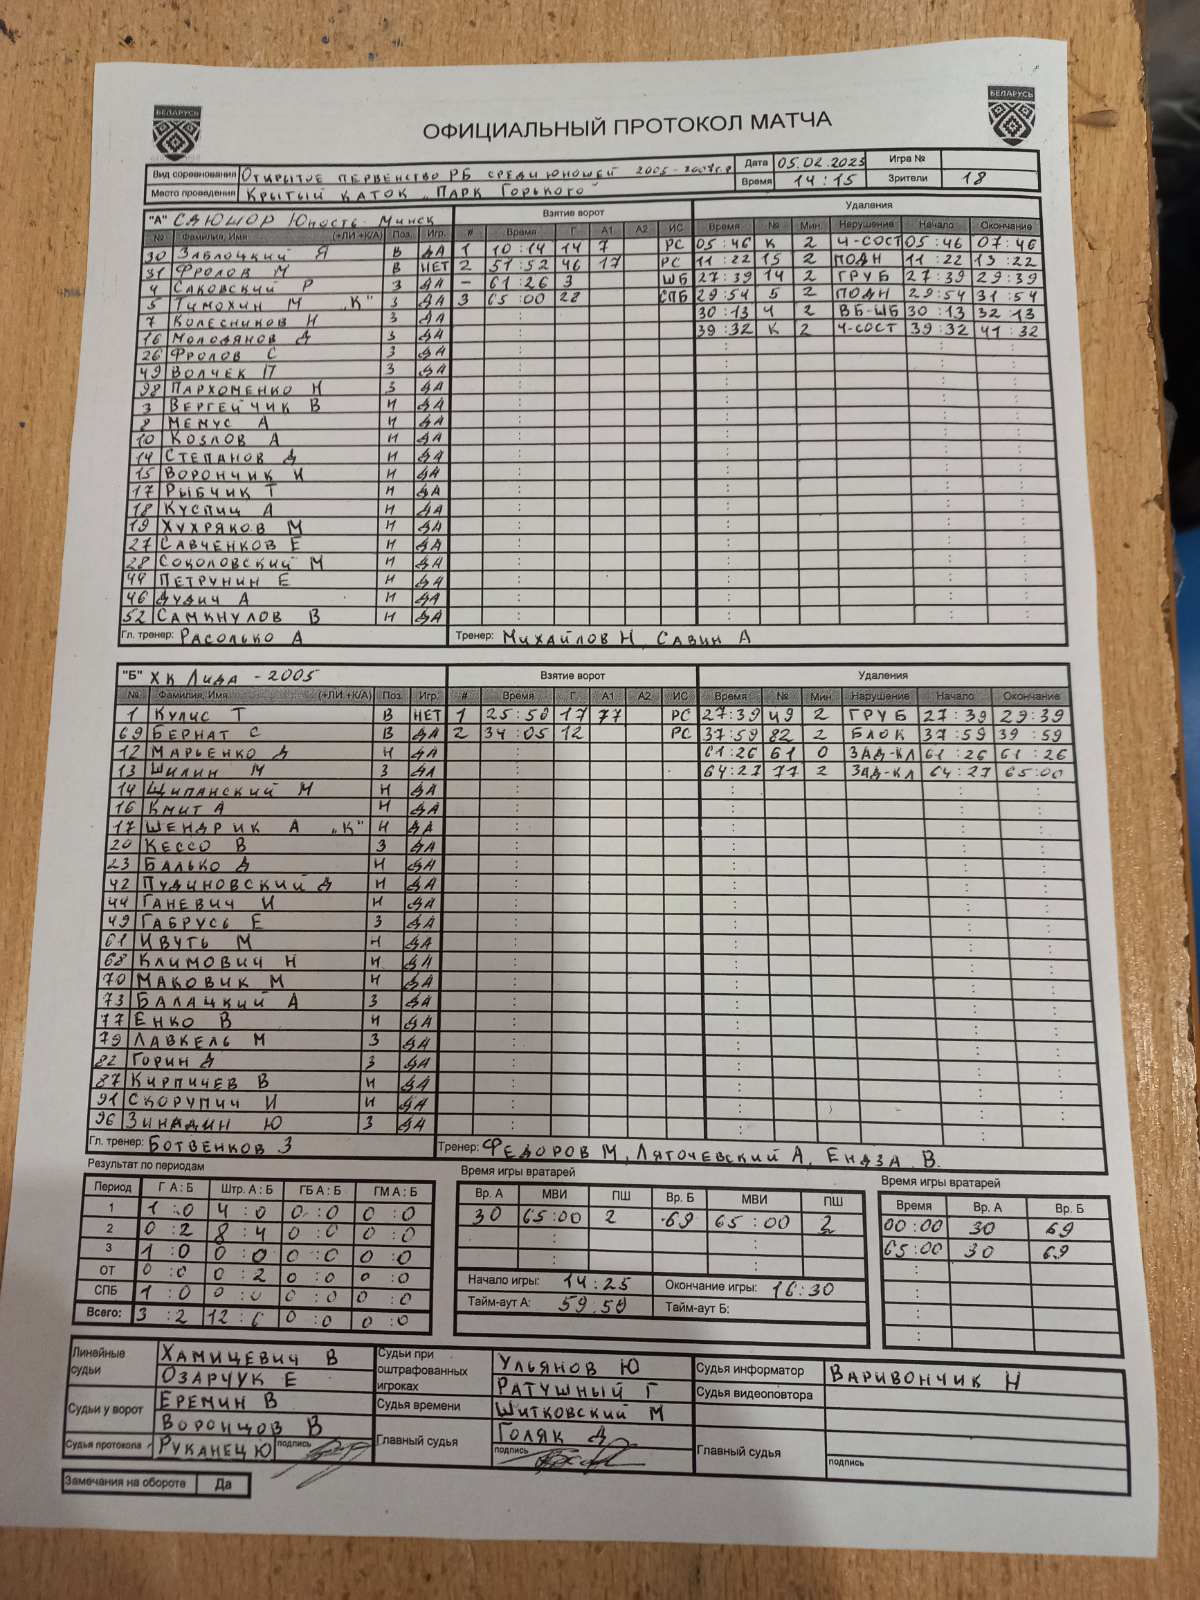 БЕЛАРУСЬ
БЕЛАРУСЬ
ОФИЦИАЛЬНЫЙ ПРОТОКОЛ МАТЧА
Вид соревнования Открытое первенство РБ среди юношей 2005-2007г.р Дата 05.02.2023 Игра №
Место проведения Крытый каток „Парк Горького" Время 14:15 Зрители 18
"А" СДЮШОР Юность-Минск Взятие ворот Удаления
№ Фамилия, Имя (+ЛИ,+К/А) Поз. Игр. # Время Г А1 А2 ИС Время № Мин. Нарушение Начало Окончание
30 Заблоцкий Я В ДА 1 10:14 14 7 РС 05:46 К 2 Ч-СОСТ 05:46 07:46
31 Фролов М В НЕТ 2 51:52 46 17 РС 11:22 15 2 ПОДН 11:22 13:22
4 Саковский Р З ДА – 61:26 3 ШБ 27:39 14 2 ГРУБ 27:39 29:39
5 Тимохин М „К" З ДА 3 65:00 28 СПБ 29:54 5 2 ПОДН 29:54 31:54
7 Колесников И З ДА 30:13 4 2 ВБ-ШБ 30:13 32:13
16 Молодянов Д З ДА 39:32 К 2 Ч-СОСТ 39:32 41:32
26 Фролов С З ДА
49 Волчек П З ДА
98 Пархоменко Н З ДА
3 Вергейчик В Н ДА
8 Мемус А Н ДА
10 Козлов А Н ДА
14 Степанов Д Н ДА
15 Ворончик И Н ДА
17 Рыбчик Т Н ДА
18 Куспиц А Н ДА
19 Хухряков М Н ДА
27 Савченков Е Н ДА
28 Соколовский М Н ДА
44 Петрунин Е Н ДА
46 Дудич А Н ДА
52 Самкнулов В Н ДА
Гл. тренер: Расолько А Тренер: Михайлов Н, Савин А
"Б" ХК Лида - 2005 Взятие ворот Удаления
№ Фамилия, Имя (+ЛИ,+К/А) Поз. Игр. # Время Г А1 А2 ИС Время № Мин. Нарушение Начало Окончание
1 Кулис Т В НЕТ 1 25:50 17 77 РС 27:39 49 2 ГРУБ 27:39 29:39
69 Бернат С В ДА 2 34:05 12 РС 37:59 82 2 БЛОК 37:59 39:59
12 Марьенко Д Н ДА 61:26 61 0 ЗАД-КЛ 61:26 61:26
13 Шилин М З ДА 64:27 77 2 ЗАД-КЛ 64:27 65:00
14 Щипанский М Н ДА
16 Кмит А Н ДА
17 Шендрик А „К" Н ДА
20 Кессо В З ДА
23 Балько Д Н ДА
42 Пудиновский Д Н ДА
44 Ганевич И Н ДА
49 Габрусь Е З ДА
61 Ивуть М Н ДА
68 Климович Н Н ДА
70 Маковик М Н ДА
73 Балацкий А З ДА
77 Енко В Н ДА
79 Лавкель М З ДА
82 Горин Д З ДА
87 Кирпичев В Н ДА
91 Скорупич И Н ДА
96 Зинадин Ю З ДА
Гл. тренер: Ботвенков З Тренер: Федоров М, Ляточевский А, Ендза В.
Результат по периодам Время игры вратарей Время игры вратарей
Период Г А : Б Штр. А : Б ГБ А : Б ГМ А : Б Вр. А МВИ ПШ Вр. Б МВИ ПШ Время Вр. А Вр. Б
1 1:0 4:0 0:0 0:0 30 65:00 2 69 65:00 2 00:00 30 69
2 0:2 8:4 0:0 0:0 65:00 30 69
3 1:0 0:0 0:0 0:0
ОТ 0:0 0:2 0:0 0:0 Начало игры: 14:25 Окончание игры: 16:30
СПБ 1:0 0:0 0:0 0:0 Тайм-аут А: 59:59 Тайм-аут Б:
Всего: 3:2 12:6 0:0 0:0
Линейные судьи Хамицевич В Судьи при оштрафованных игроках Ульянов Ю Судья информатор Варивончик Н
Озарчук Е Ратушный Г Судья видеоповтора
Судьи у ворот Еремин В Судья времени Шитковский М
Воронцов В Главный судья Голяк Д Главный судья
Судья протокола Руканец Ю подпись подпись подпись
Замечания на обороте Да